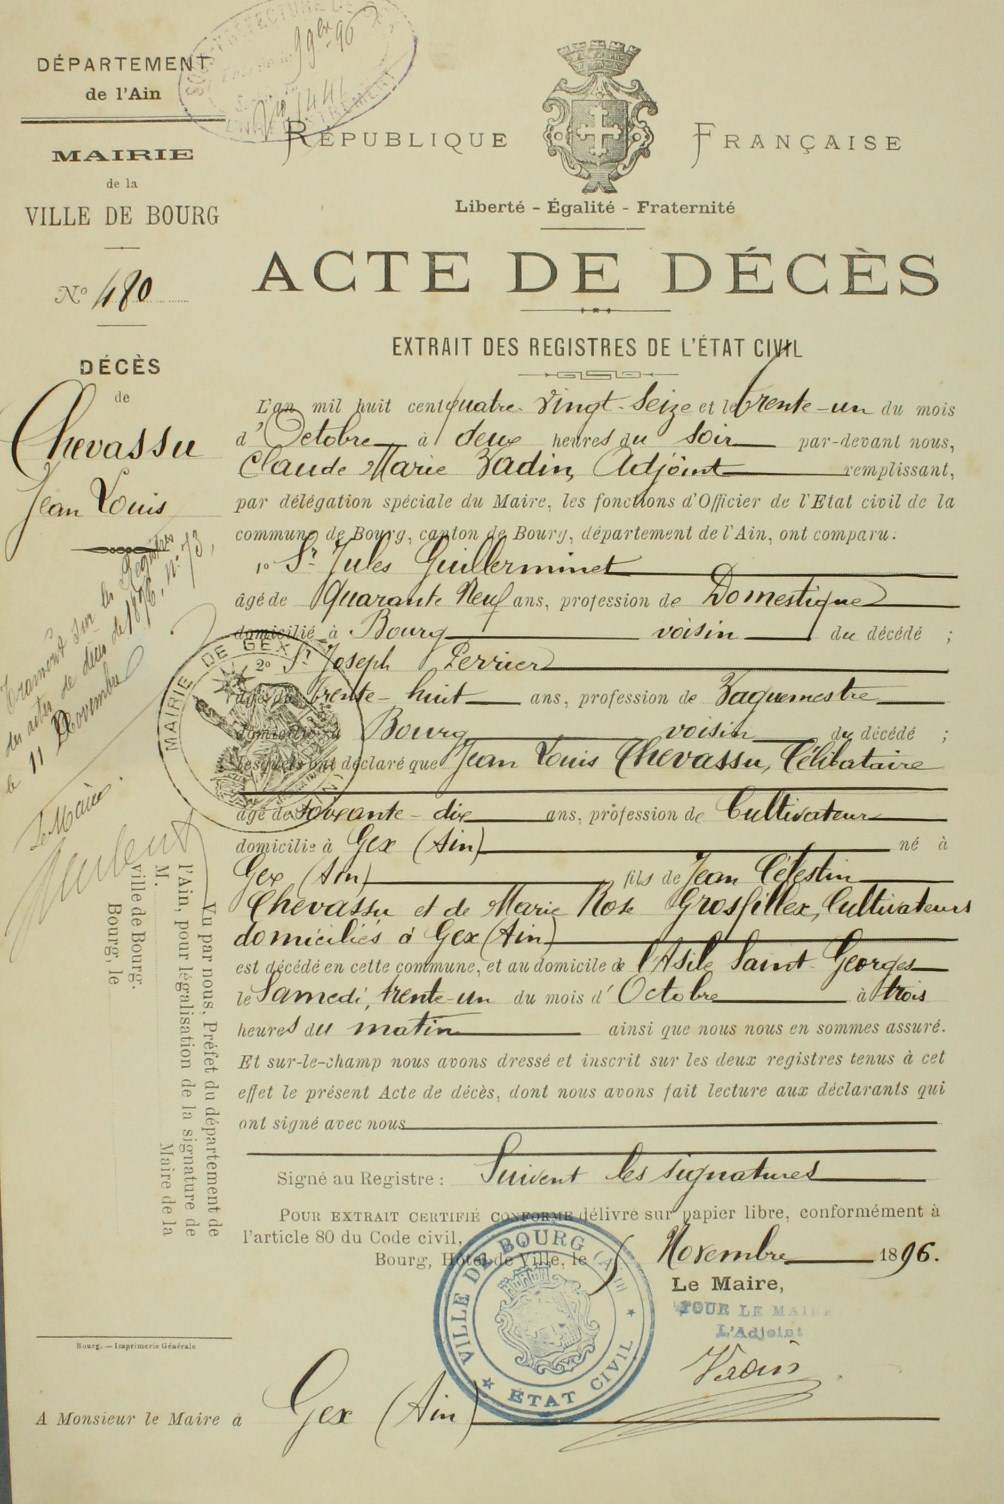 DÉPARTEMENT
de l'Ain
MAIRIE
de la
VILLE DE BOURG
N° 480
DÉCÈS
de
Chevassu
Jean Louis
Transcrit sur les Registres
des actes de décès de 1896, N° 73,
le 11 Novembre
Le Maire
Vu par nous, Préfet du département de
l'Ain, pour légalisation de la signature de
M. Maire de la
ville de Bourg.
Bourg, le
Bourg. — Imprimerie Générale
RÉPUBLIQUE FRANÇAISE
Liberté - Égalité - Fraternité
ACTE DE DÉCÈS
EXTRAIT DES REGISTRES DE L'ÉTAT CIVIL
L'an mil huit cent quatre-vingt-seize et le trente-un du mois
d'Octobre à deux heures du soir par-devant nous,
Claude Marie Vadin, Adjoint remplissant,
par délégation spéciale du Maire, les fonctions d'Officier de l'Etat civil de la
commune de Bourg, canton de Bourg, département de l'Ain, ont comparu.
1° Sr Jules Guillerminet
âgé de Quarante Neuf ans, profession de Domestique
domicilié à Bourg voisin du décédé ;
2° Sr Joseph Perrier
âgé de trente-huit ans, profession de Vaguemestre
domicilié à Bourg voisin du décédé ;
lesquels ont déclaré que Jean Louis Chevassu, Célibataire
âgé de soixante-dix ans, profession de Cultivateur
domicilié à Gex (Ain) né à
Gex (Ain) fils de Jean Célestin
Chevassu et de Marie Rose Grosfillex, Cultivateurs
domiciliés à Gex (Ain)
est décédé en cette commune, et au domicile de l'Asile Saint-Georges
le Samedi, trente-un du mois d'Octobre à trois
heures du matin ainsi que nous nous en sommes assuré.
Et sur-le-champ nous avons dressé et inscrit sur les deux registres tenus à cet
effet le présent Acte de décès, dont nous avons fait lecture aux déclarants qui
ont signé avec nous
Signé au Registre : Suivent les signatures
POUR EXTRAIT CERTIFIÉ CONFORME délivré sur papier libre, conformément à
l'article 80 du Code civil,
Bourg, Hôtel de Ville, le 5 Novembre 1896.
Le Maire,
POUR LE MAIRE
L'Adjoint
A Monsieur le Maire à Gex (Ain)
MAIRIE DE GEX
VILLE DE BOURG (AIN)
ÉTAT CIVIL